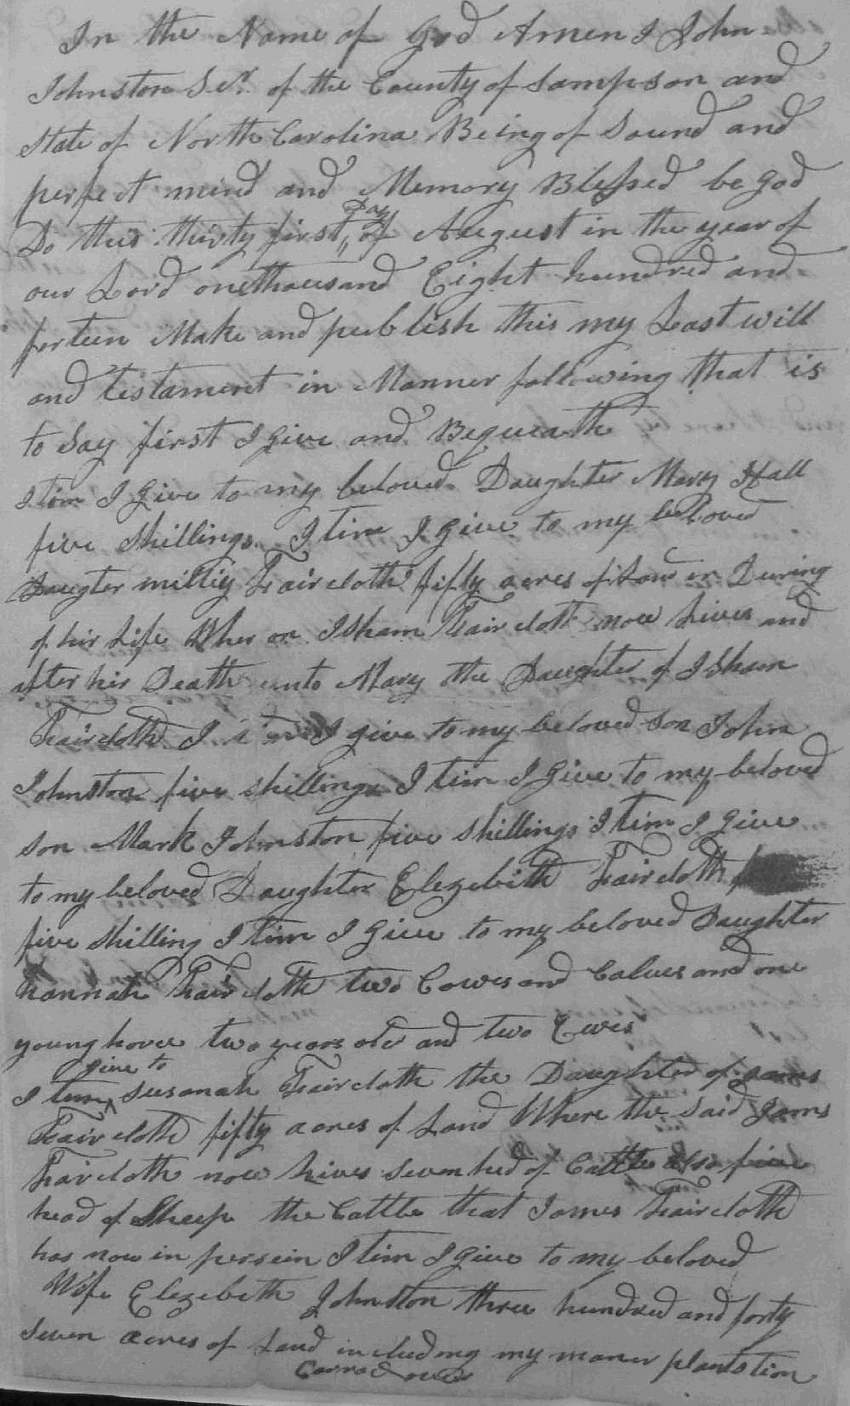 In the Name of God Amen I John
Johnston Senr. of the County of Sampson and
State of North Carolina Being of Sound and
perfect mind and Memory Blessed be god
Do this thirty first Day of August in the year of
our Lord onethousand Eight hundred and
forteen Make and publish this my Last will
and testament in Manner following that is
to Say first I give and Bequeath
Itim I Give to my beloved Daughter Mary Hall
five Shillings Itim I give to my beloved
Daugter milliy Faircloth fifty acres of Land During
of hir Life Wher on Isham Faircloth now Lives and
after hir Death unto Mary the Daughter of Isham
Faircloth Itim I give to my beloved son John
Johnston five shillings Itim I Give to my beloved
son Mark Johnston five Shillings Itim I Give
to my beloved Daughter Elezebith Faircloth
five Shilling Itim I Give to my beloved Daughter
hannah Faircloth two Cowes and Calves and one
young two years old and two Ewes
give to
Itim Susanah Faircloth the Daughter of James
Faircloth fifty acres of Land Where the Said Jams
Faircloth now Lives Seven hed of Cattle also five
head of Sheep the Cattle that James Faircloth
has now in persein Itim I Give to my beloved
Wife Elezebeth Johnston three hundred and forty
Seven acres of Land including my maner plantstion